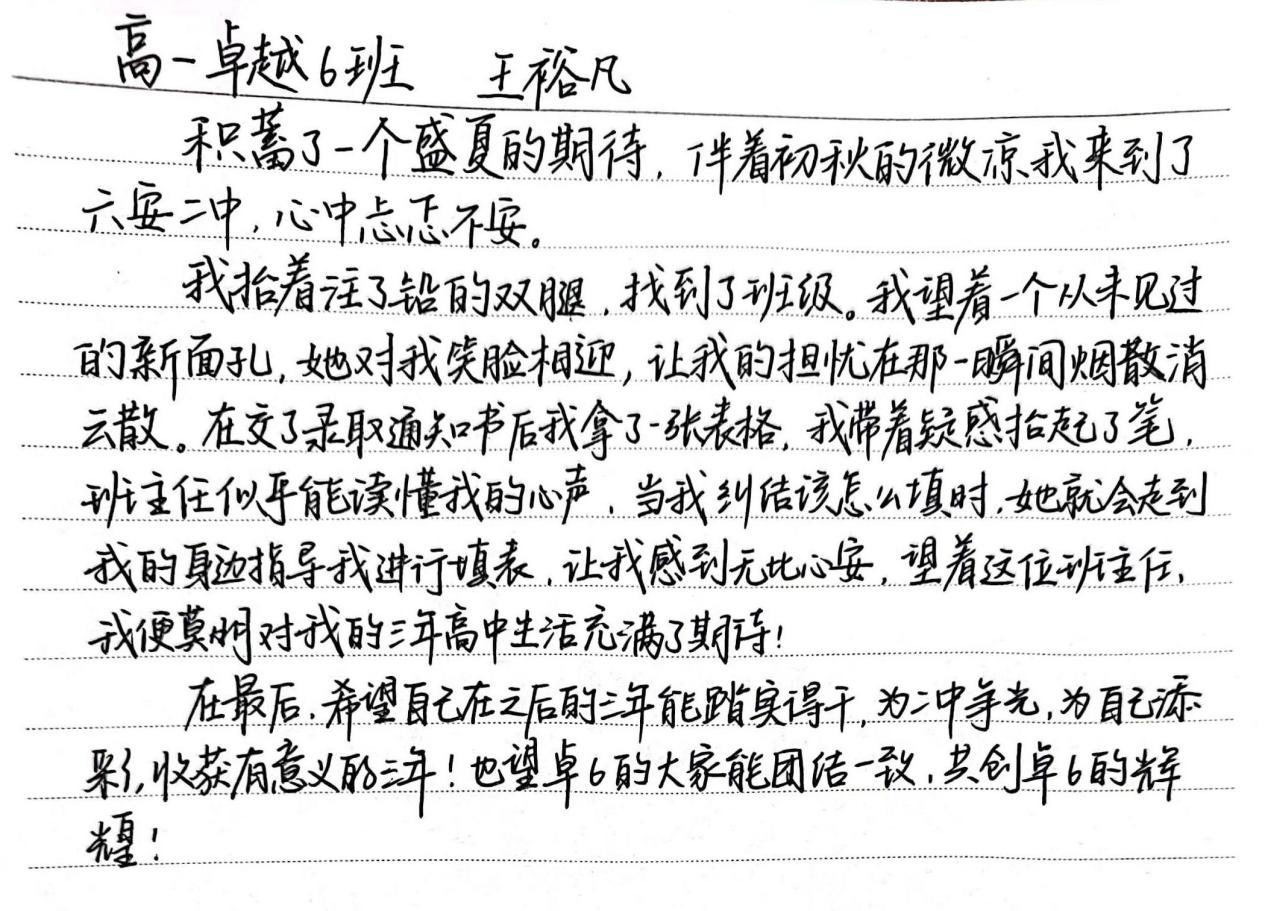 高一卓越6班 王裕凡
积蓄了一个盛夏的期待，伴着初秋的微凉我来到了
六安二中，心中忐忑不安。
我抬着注了铅的双腿，找到了班级。我望着一个从未见过
的新面孔，她对我笑脸相迎，让我的担忧在那一瞬间烟散消
云散。在交了录取通知书后我拿了一张表格，我带着疑惑抬起了笔，
班主任似乎能读懂我的心声，当我纠结该怎么填时，她就会走到
我的身边指导我进行填表，让我感到无比心安，望着这位班主任，
我便莫明对我的三年高中生活充满了期待！
在最后，希望自己在之后的三年能踏实得干，为二中争光，为自己添
彩，收获有意义的三年！也望卓6的大家能团结一致，共创卓6的辉
煌！